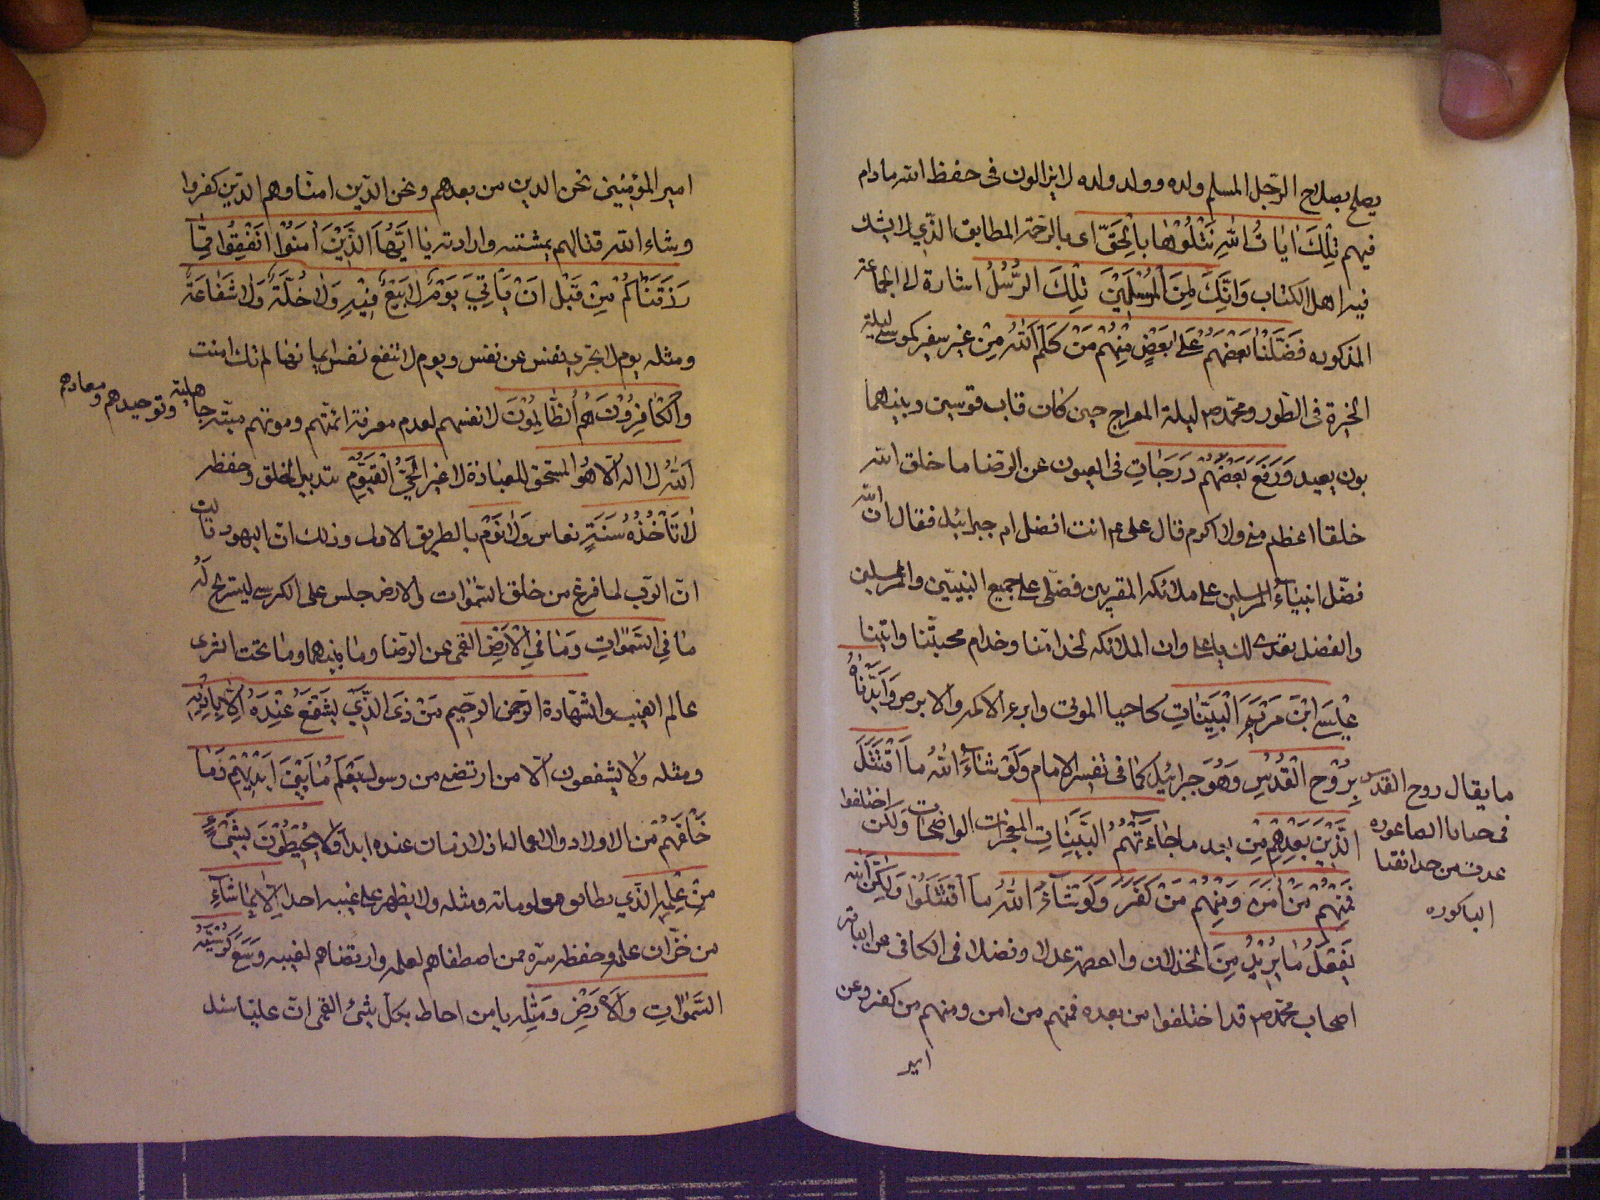 يصلح بصلاح الرّجل المسلم ولده وولد ولده لايزالون فى حفظ الله مادام
فيهم تِلْكَ اٰيَاتُ اللّٰهِ نَتْلُوْهَا بِالْحَقِّ اى بالرحمة المطابق الّذي لايشك
فيه اهل الكتاب وَاِنَّكَ لَمِنَ الْمُرْسَلِيْنَ تِلْكَ الرُّسُلُ اشارة الى الجماعة
المذكوره فَضَّلْنَا بَعْضَهُمْ عَلٰى بَعْضٍ مِنْهُمْ مَنْ كَلَّمَ اللّٰهُ مِنْ غير سفير كموسى ليلة
الحيرة فى الطّور ومحمّد ص ليلة المعراج حين كان قاب قوسين وبينهما
بون بعيد وَرَفَعَ بَعْضَهُمْ دَرَجَاتٍ فى العيون عن الرضا ما خلق الله
خلقا اعظم منى ولا اكرم قال على ع انت افضل ام جبرائيل فقال انّ الله
فضّل انبيائه المرسلين على ملائكته المقربين فضّلى على جميع النبيّين والمرسلين
والفضل بعدى لك يا على وانّ الملائكة لخدامنا وخدام محبيّنا واٰتينا
عِيْسَى ابْنَ مَرْيَمَ الْبَيِّنَاتِ كاحيا الموتى وابرء الاكمه والابرص وَاَيَّدْنَاهُ
بِرُوْحِ الْقُدُسِ وَهُوَ جبرائيل كما فى تفسير الامام وَلَوْ شَاءَ اللّٰهُ مَا اقْتَتَلَ
الَّذِيْنَ مِنْ بَعْدِهِمْ مِنْ بعد ما جَاءَتْهُمُ الْبَيِّنَاتُ المعجزات الواضحات وَلٰكِنِ اختلفوا
فَمِنْهُمْ مَنْ اٰمَنَ وَمِنْهُمْ مَنْ كَفَرَ وَلَوْ شَاءَ اللّٰهُ مَا اقْتَتَلُوْا وَلٰكِنَّ اللّٰهَ
يَفْعَلُ مَا يُرِيْدُ مِنَ الخذلان والعصمة عدلا وفضلا فى الكافى عن الباقر
اصحاب محمّد ص قد اختلفوا من بعده فمنهم من امن ومنهم من كفر وعن
امير
ما يقال روح القدس
فى جنان الصاغوره
من حدائقنا
الباكوره
امير المؤمنين نحن الذين من بعدهم ونحن الّذين امنّا وهم الّذين كفروا
وشاء الله قتالهم بمشيّته وارادته يَا اَيُّهَا الَّذِيْنَ اٰمَنُوْا اَنْفِقُوا مِمَّا
رَزَقْنَاكُمْ مِنْ قَبْلِ اَنْ يَأْتِيَ يَوْمٌ لَا بَيْعٌ فِيْهِ وَلَا خُلَّةٌ وَلَا شَفَاعَةٌ
ومثله يوم لا تجزى نفس عن نفس ويوم لا تنفع نفس ايمانها لم تك امنت
وَالْكَافِرُوْنَ هُمُ الظَّالِمُوْنَ لانفسهم لعدم معرفة ائمّتهم وموتهم ميتة جاهلية وتوحيدهم ومعادهم
اَللّٰهُ لَا اِلٰهَ اِلَّا هُوَ المستحق للعبادة لا غير الْحَيُّ الْقَيُّوْمُ بتدبير الخلق وحفظه
لَا تَأْخُذُهُ سِنَةٌ نعاس وَلَا نَوْمٌ بالطريق الاولى وذلك انّ اليهود قالت
انّ الرّب لما فرغ من خلق السّمٰوات والارض جلس على الكرسى ليستريح لَهُ
مَا فِي السَّمٰوَاتِ وَمَا فِي الْاَرْضِ القمى عن الرّضا وما بينهما وما تحت الثرى
عالم الغيب والشّهادة الرّحمن الرّحيم مَنْ ذَى الَّذِيْ يَشْفَعُ عِنْدَهُ اِلَّا بِاِذْنِهِ
ومثله ولا يشفعون الّا من ارتضى من رسول يَعْلَمُ مَا بَيْنَ اَيْدِيْهِمْ وَمَا
خَلْفَهُمْ من الاولاد والاعمال اذ لا زمان عنده ابدا وَلَا يُحِيْطُوْنَ بِشَيْءٍ
مِنْ عِلْمِهِ الّذي يطابق معلوماته ومثله ولا يظهر على غيبه احدا اِلَّا بِمَا شَاءَ
من خزّان علمه وحفظه سرّه ممن اصطفاهم لعلمه وارتضاهم لغيبه وَسِعَ كُرْسِيُّهُ
السَّمٰوَاتِ وَالْاَرْضَ وَمثله يا من احاط بكل شئ القمى انّ عليّا سئل